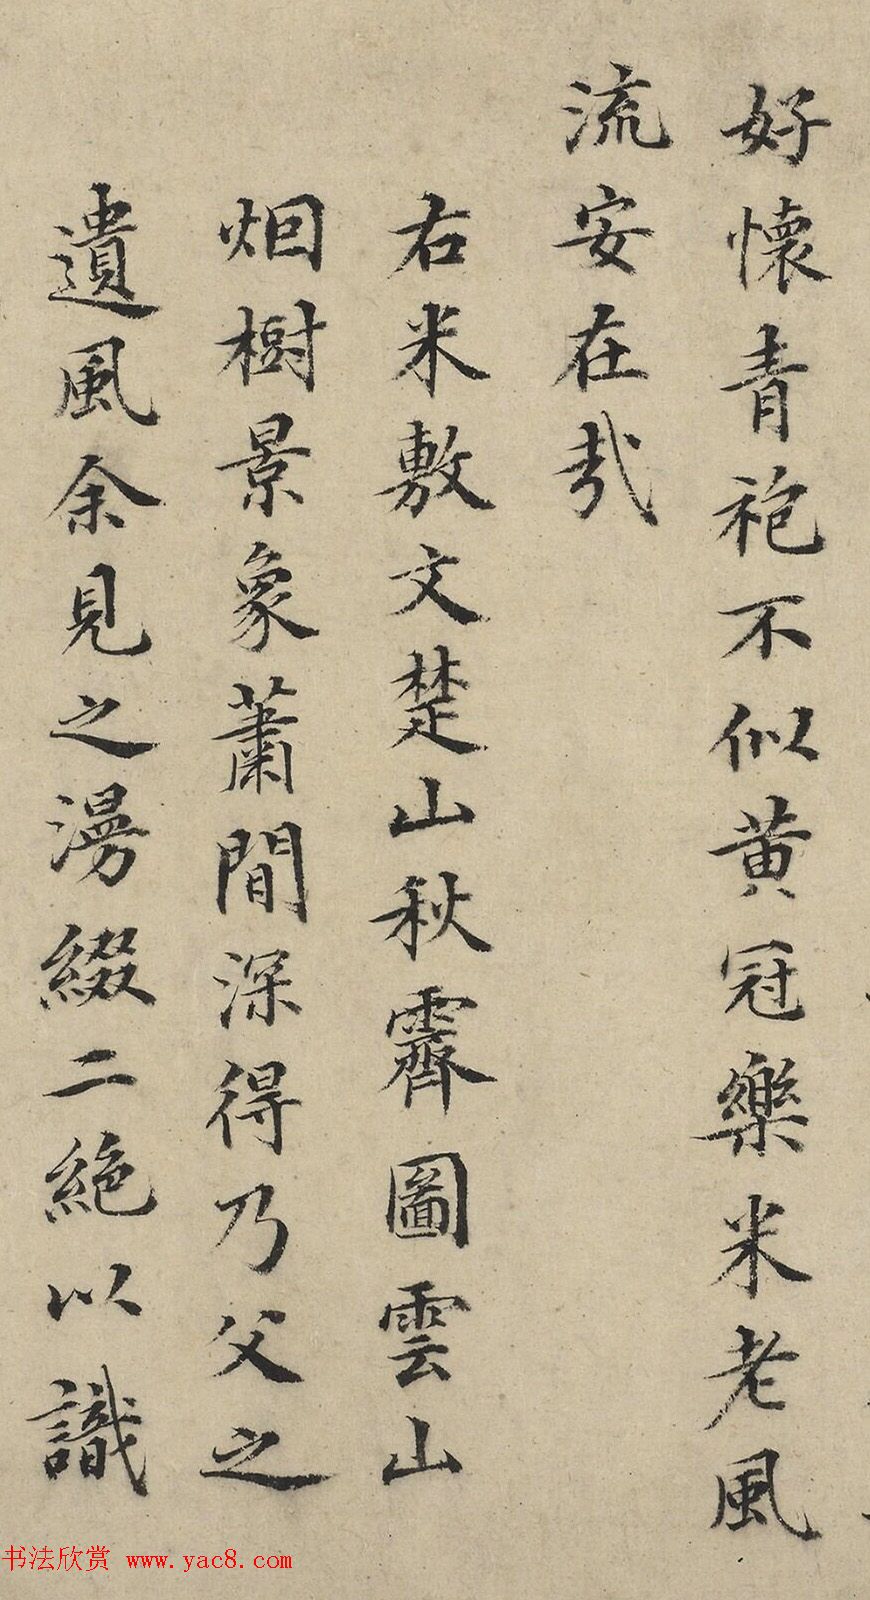 好懷青袍不似黄冠樂米老風
流安在哉
右米敷文楚山秋霽圖雲山
烟樹景象蕭閒深得乃父之
遺風余見之漫綴二絶以識
书法欣赏 www.yac8.com